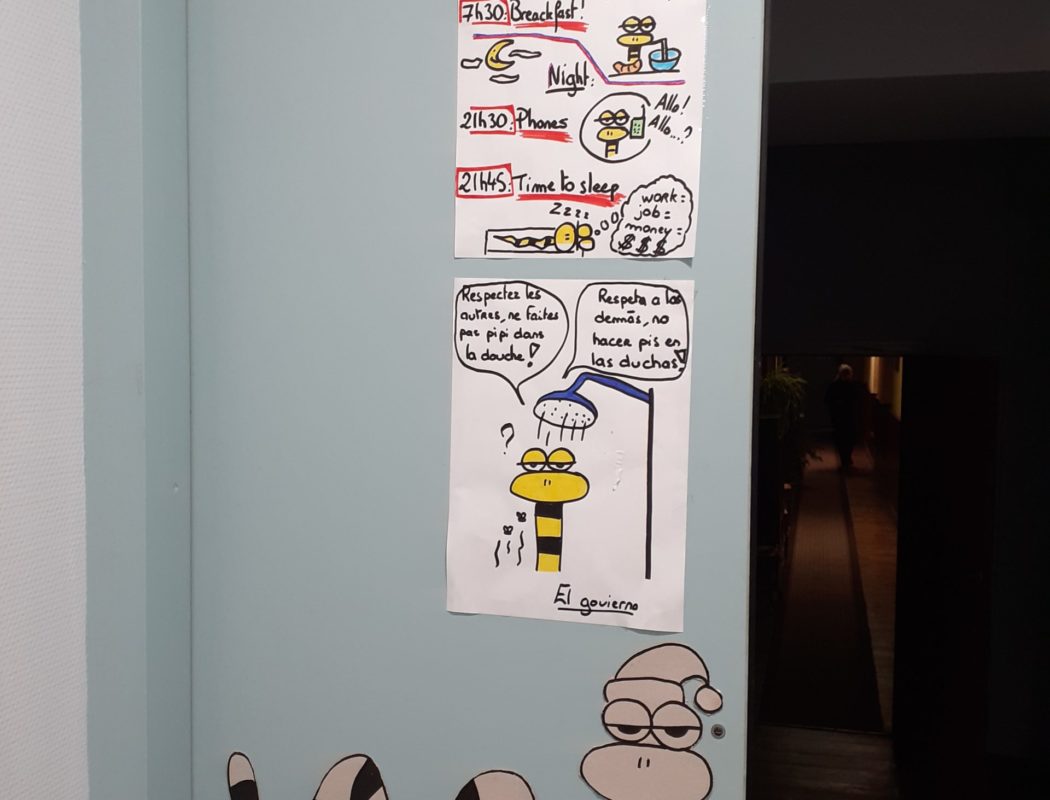 7h30: Breackfast!
Night:
21h30: Phones
Allo!
Allo...?
21h45: Time to sleep
zzzz
work =
job =
money =
$ $ $
Respectez les
autres, ne faites
pas pipi dans
la douche!
Respeta a los
demás, no
hacer pis en
las duchas!
?
El govierno